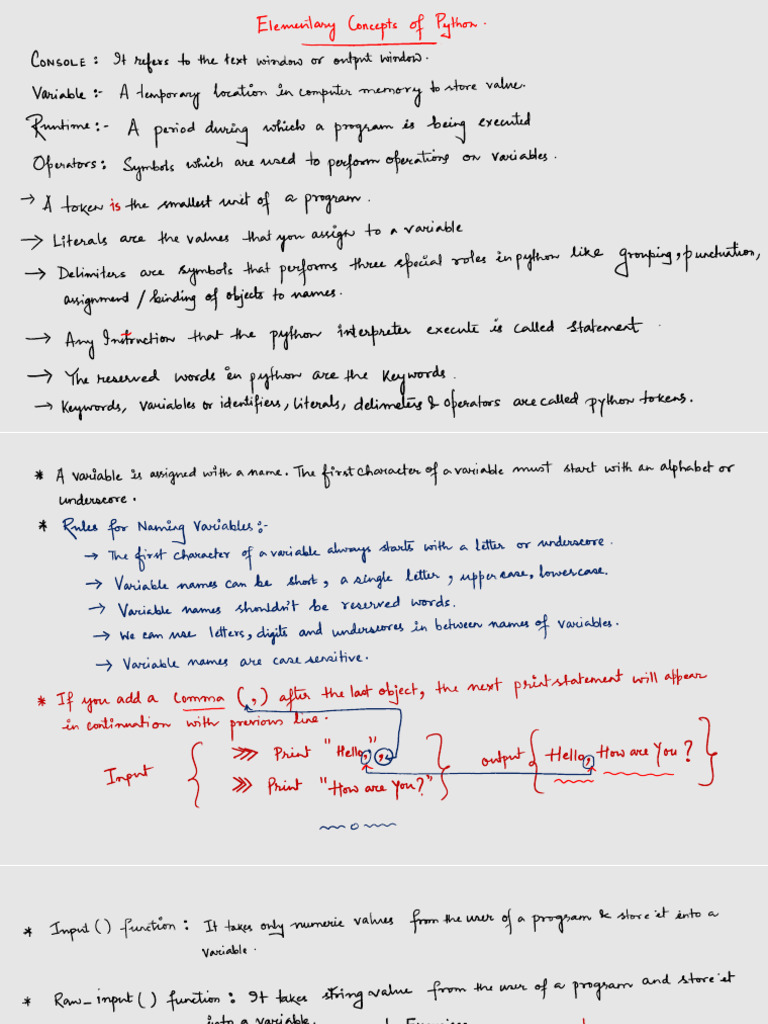 Elementary Concepts of Python.
CONSOLE : It refers to the text window or output window.
Variable :- A temporary location in computer memory to store value.
Runtime :- A period during which a program is being executed
Operators : Symbols which are used to perform operations on variables.
→ A token is the smallest unit of a program.
→ Literals are the values that you assign to a variable
→ Delimiters are symbols that performs three special roles in python like grouping, punctuation,
assignment / binding of objects to names.
→ Any Instruction that the python interpreter execute is called statement.
→ The reserved words in python are the keywords.
→ Keywords, variables or identifiers, literals, delimeters & operators are called python tokens.
* A variable is assigned with a name. The first character of a variable must start with an alphabet or
underscore.
* Rules for Naming Variables :-
→ The first character of a variable always starts with a letter or underscore.
→ Variable names can be short, a single letter, upper case, lowercase.
→ Variable names shouldn't be reserved words.
→ We can use letters, digits and underscores in between names of variables.
→ Variable names are case sensitive.
* If you add a comma (,) after the last object, the next print statement will appear
in continuation with previous line.
Input { >>> Print "Hello,", } output { Hello, How are You? }
>>> Print "How are You?"
* Input() function : It takes only numeric values from the user of a program & store it into a
variable.
* Raw_input() function : It takes string value from the user of a program and store it
into a variable.